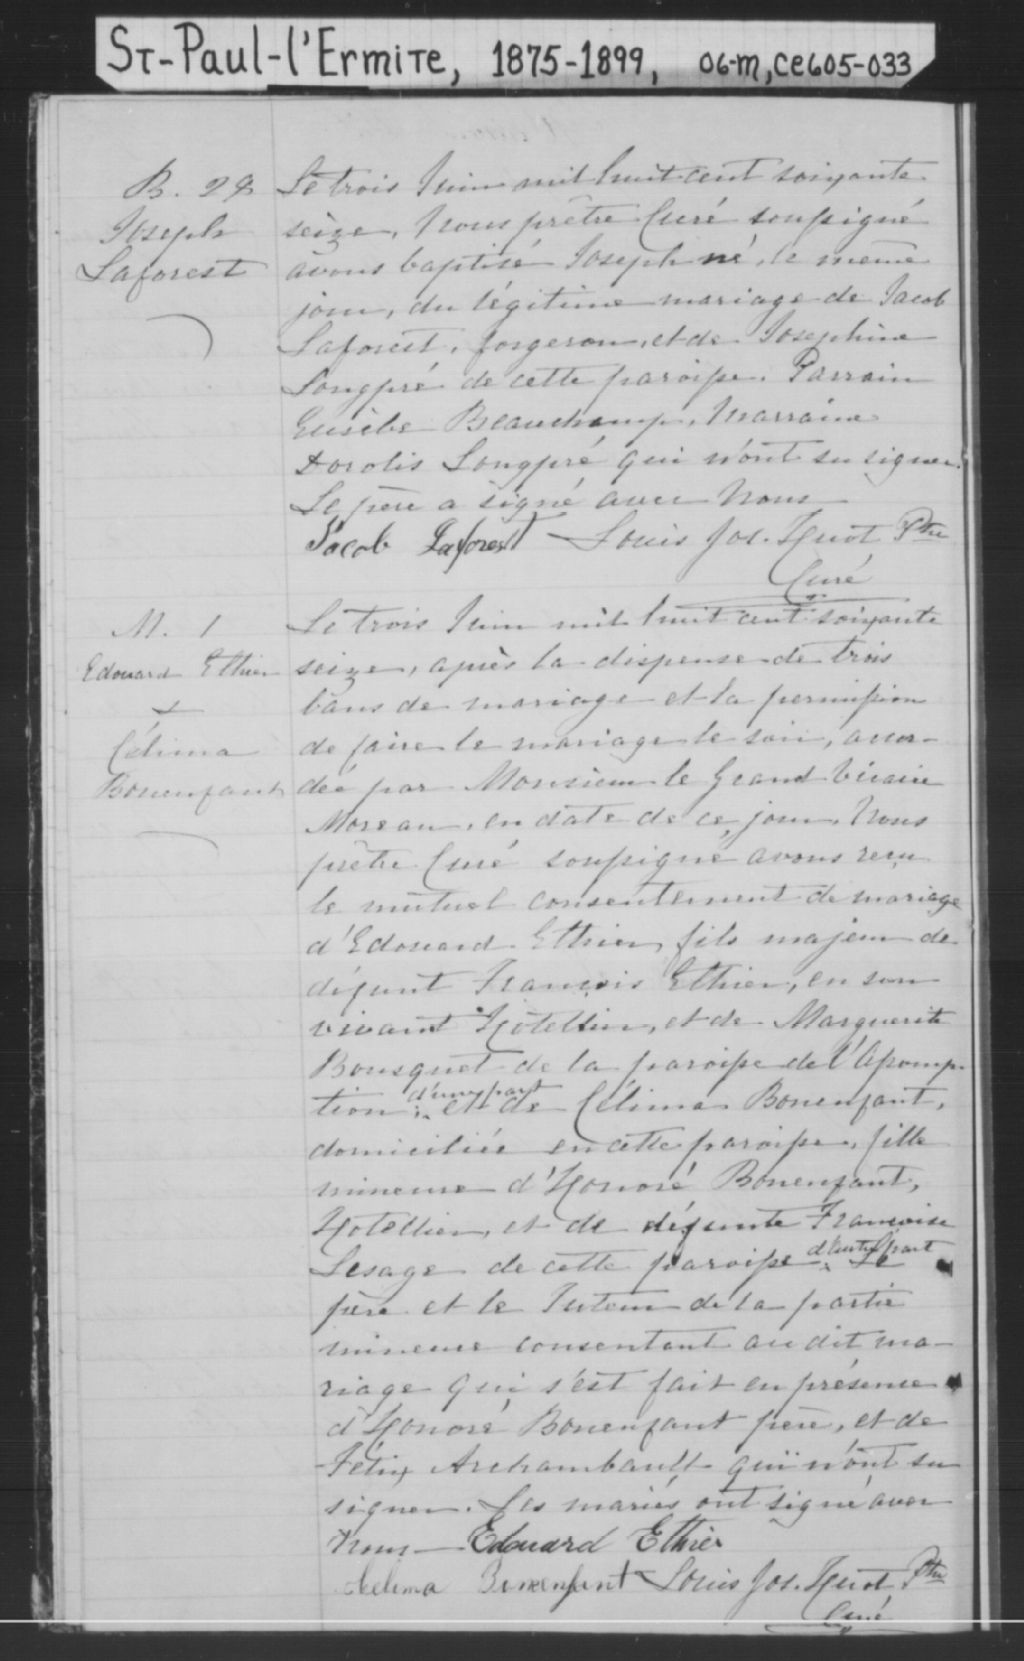 ST-Paul-l'Ermite, 1875-1899, 06-M, CE605-033
B. 28
Joseph
Laforest
Le trois Juin mil huit cent soixante
seize, Nous prêtre Curé soussigné
avons baptisé Joseph né, le même
jour, du légitime mariage de Jacob
Laforest, forgeron, et de Josephine
Longpré de cette paroisse. Parrain
Eusèbe Beauchamp, Marraine
Dorotis Longpré qui n'ont su signer.
Le père a signé avec Nous
Jacob Laforest Louis Jos. Huot Ptre
Curé
M. 1
Edouard Ethier
&
Célima
Bonenfant
Le trois Juin mil huit cent soixante
seize, après la dispense de trois
bans de mariage et la permission
de faire le mariage le soir, accor-
dée par Monsieur le Grand Vicaire
Moreau, en date de ce jour, Nous
prêtre Curé soussigné avons reçu
le mutuel consentement de mariage
d'Edouard Ethier, fils majeur de
défunt François Ethier, en son
vivant Hôtellier, et de Marguerite
Bousquet de la paroisse de l'Assomp-
tion d'une part; et de Célima Bonenfant,
domiciliée en cette paroisse, fille
mineure d'Honoré Bonenfant,
Hotellier, et de défunte Françoise
Lesage de cette paroisse d'autre part. Le
père et le Tuteur de la partie
mineure consentant au dit ma-
riage qui s'est fait en présence
d'Honoré Bonenfant père, et de
Félix Archambault qui n'ont su
signer. Les mariés ont signé avec
Nous Edouard Ethier
Celima Bonenfant Louis Jos. Huot Ptre
Curé